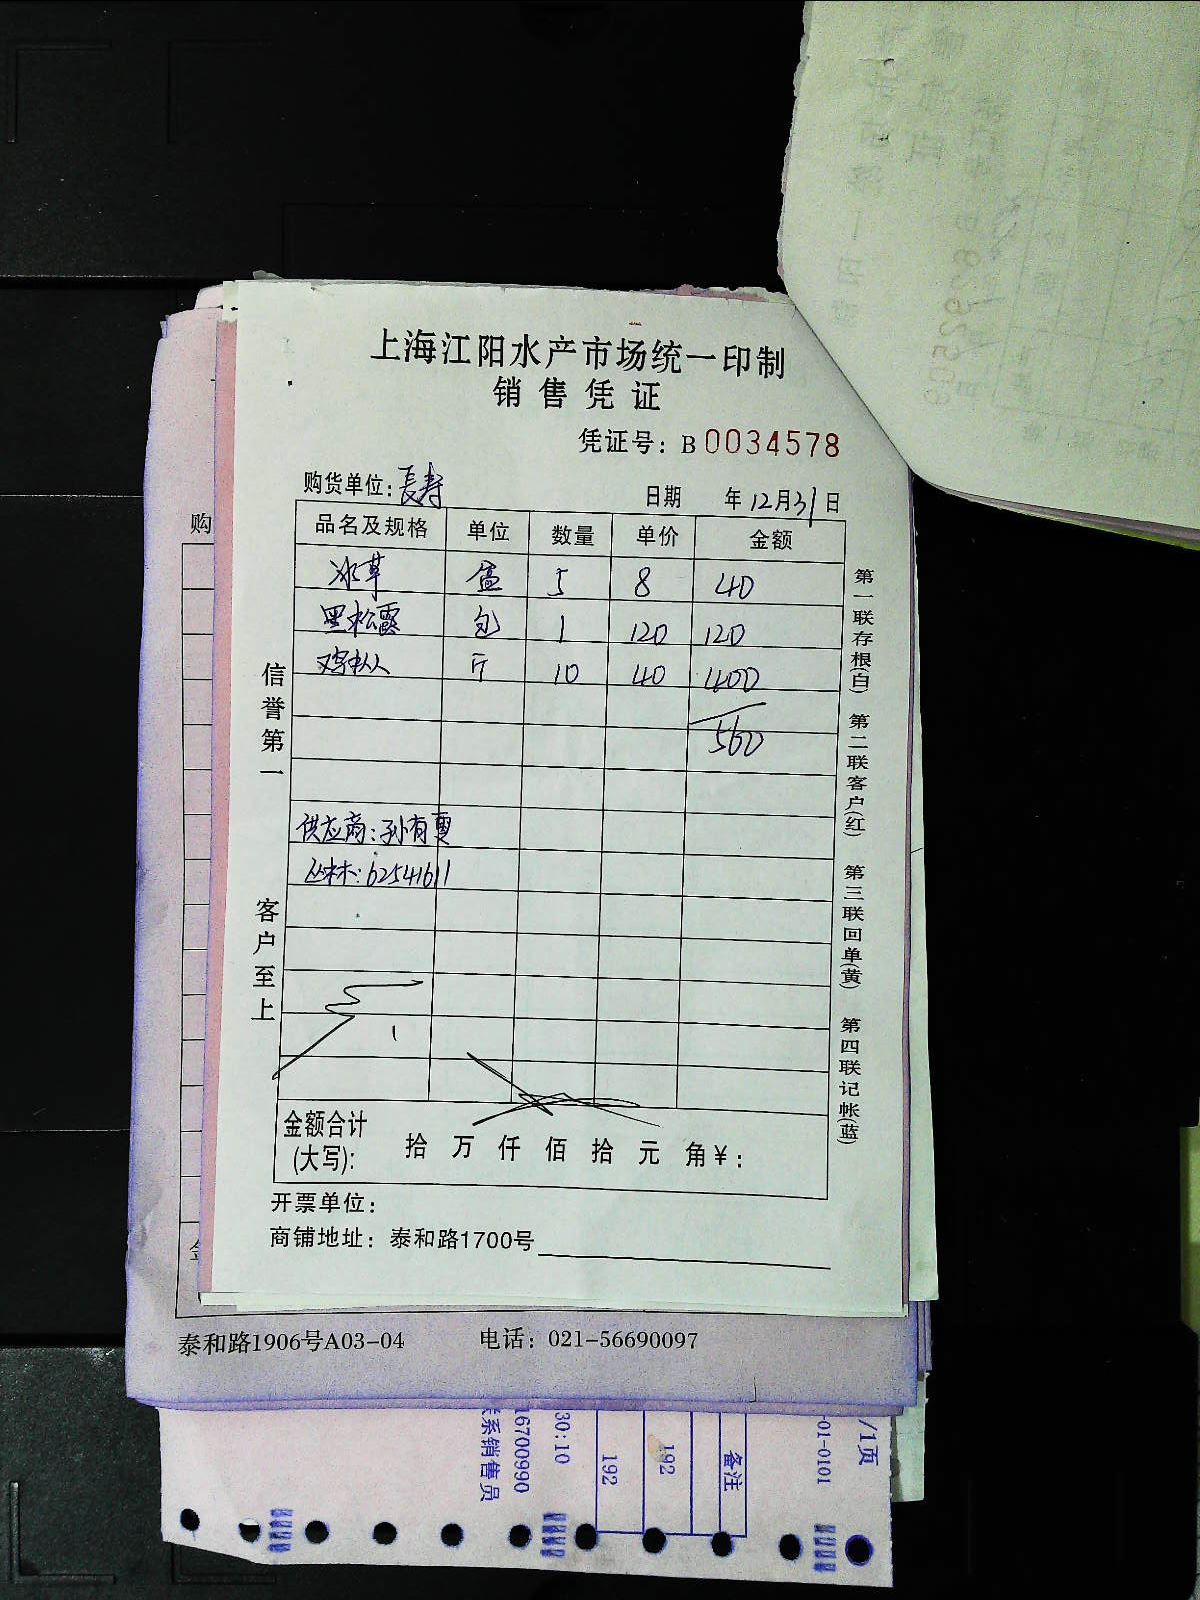 上海江阳水产市场统一印制
销售凭证
凭证号：B0034578
购货单位：長寿 日期 年12月31日
品名及规格 单位 数量 单价 金额
冰草 盒 5 8 40
黑松露 包 1 120 120
斤 10 40 400
560
供应商：孙有
丛林：62541611
金额合计
(大写)： 拾 万 仟 佰 拾 元 角 ¥：
开票单位：
商铺地址：泰和路1700号
信誉第一
客户至上
第一联存根(白) 第二联客户(红) 第三联回单(黄) 第四联记帐(蓝)
购
泰和路1906号A03-04 电话：021-56690097
/1页
-01-0101
备注
192
192
30:10
16700990
系销售员